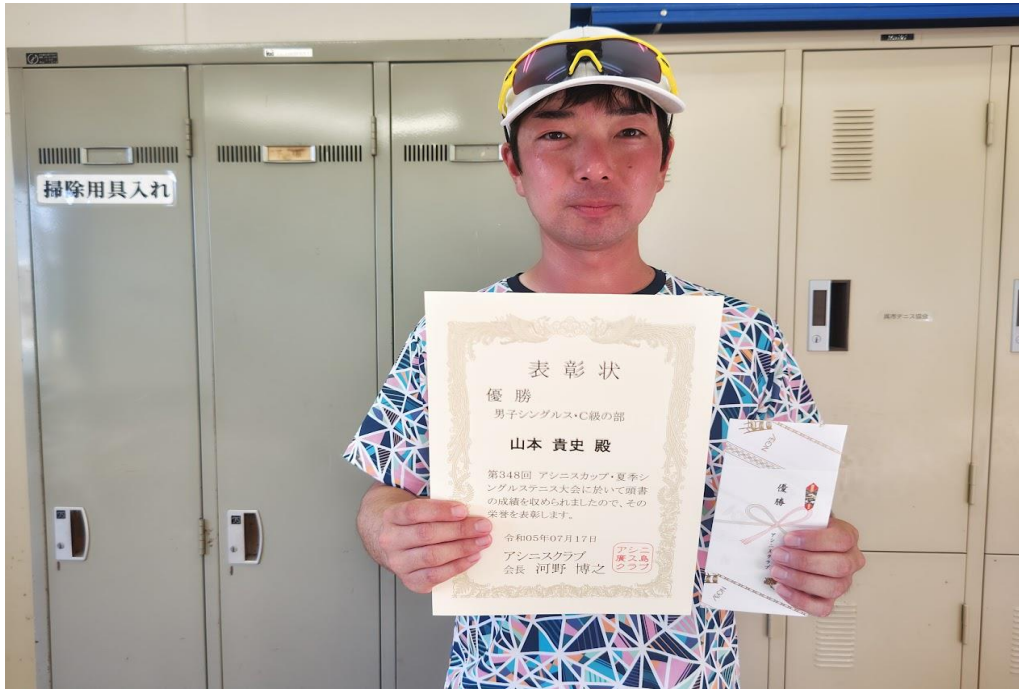 掃除用具入れ
表彰状
優勝
男子シングルス・C級の部
山本 貴史 殿
第348回 アシニスカップ・夏季シ
ングルステニス大会に於いて頭書
の成績を収められましたので、その
栄誉を表彰します。
令和05年07月17日
アシニスクラブ
会長 河野 博之
アシニ
クラブ
優勝
アシニスクラブ